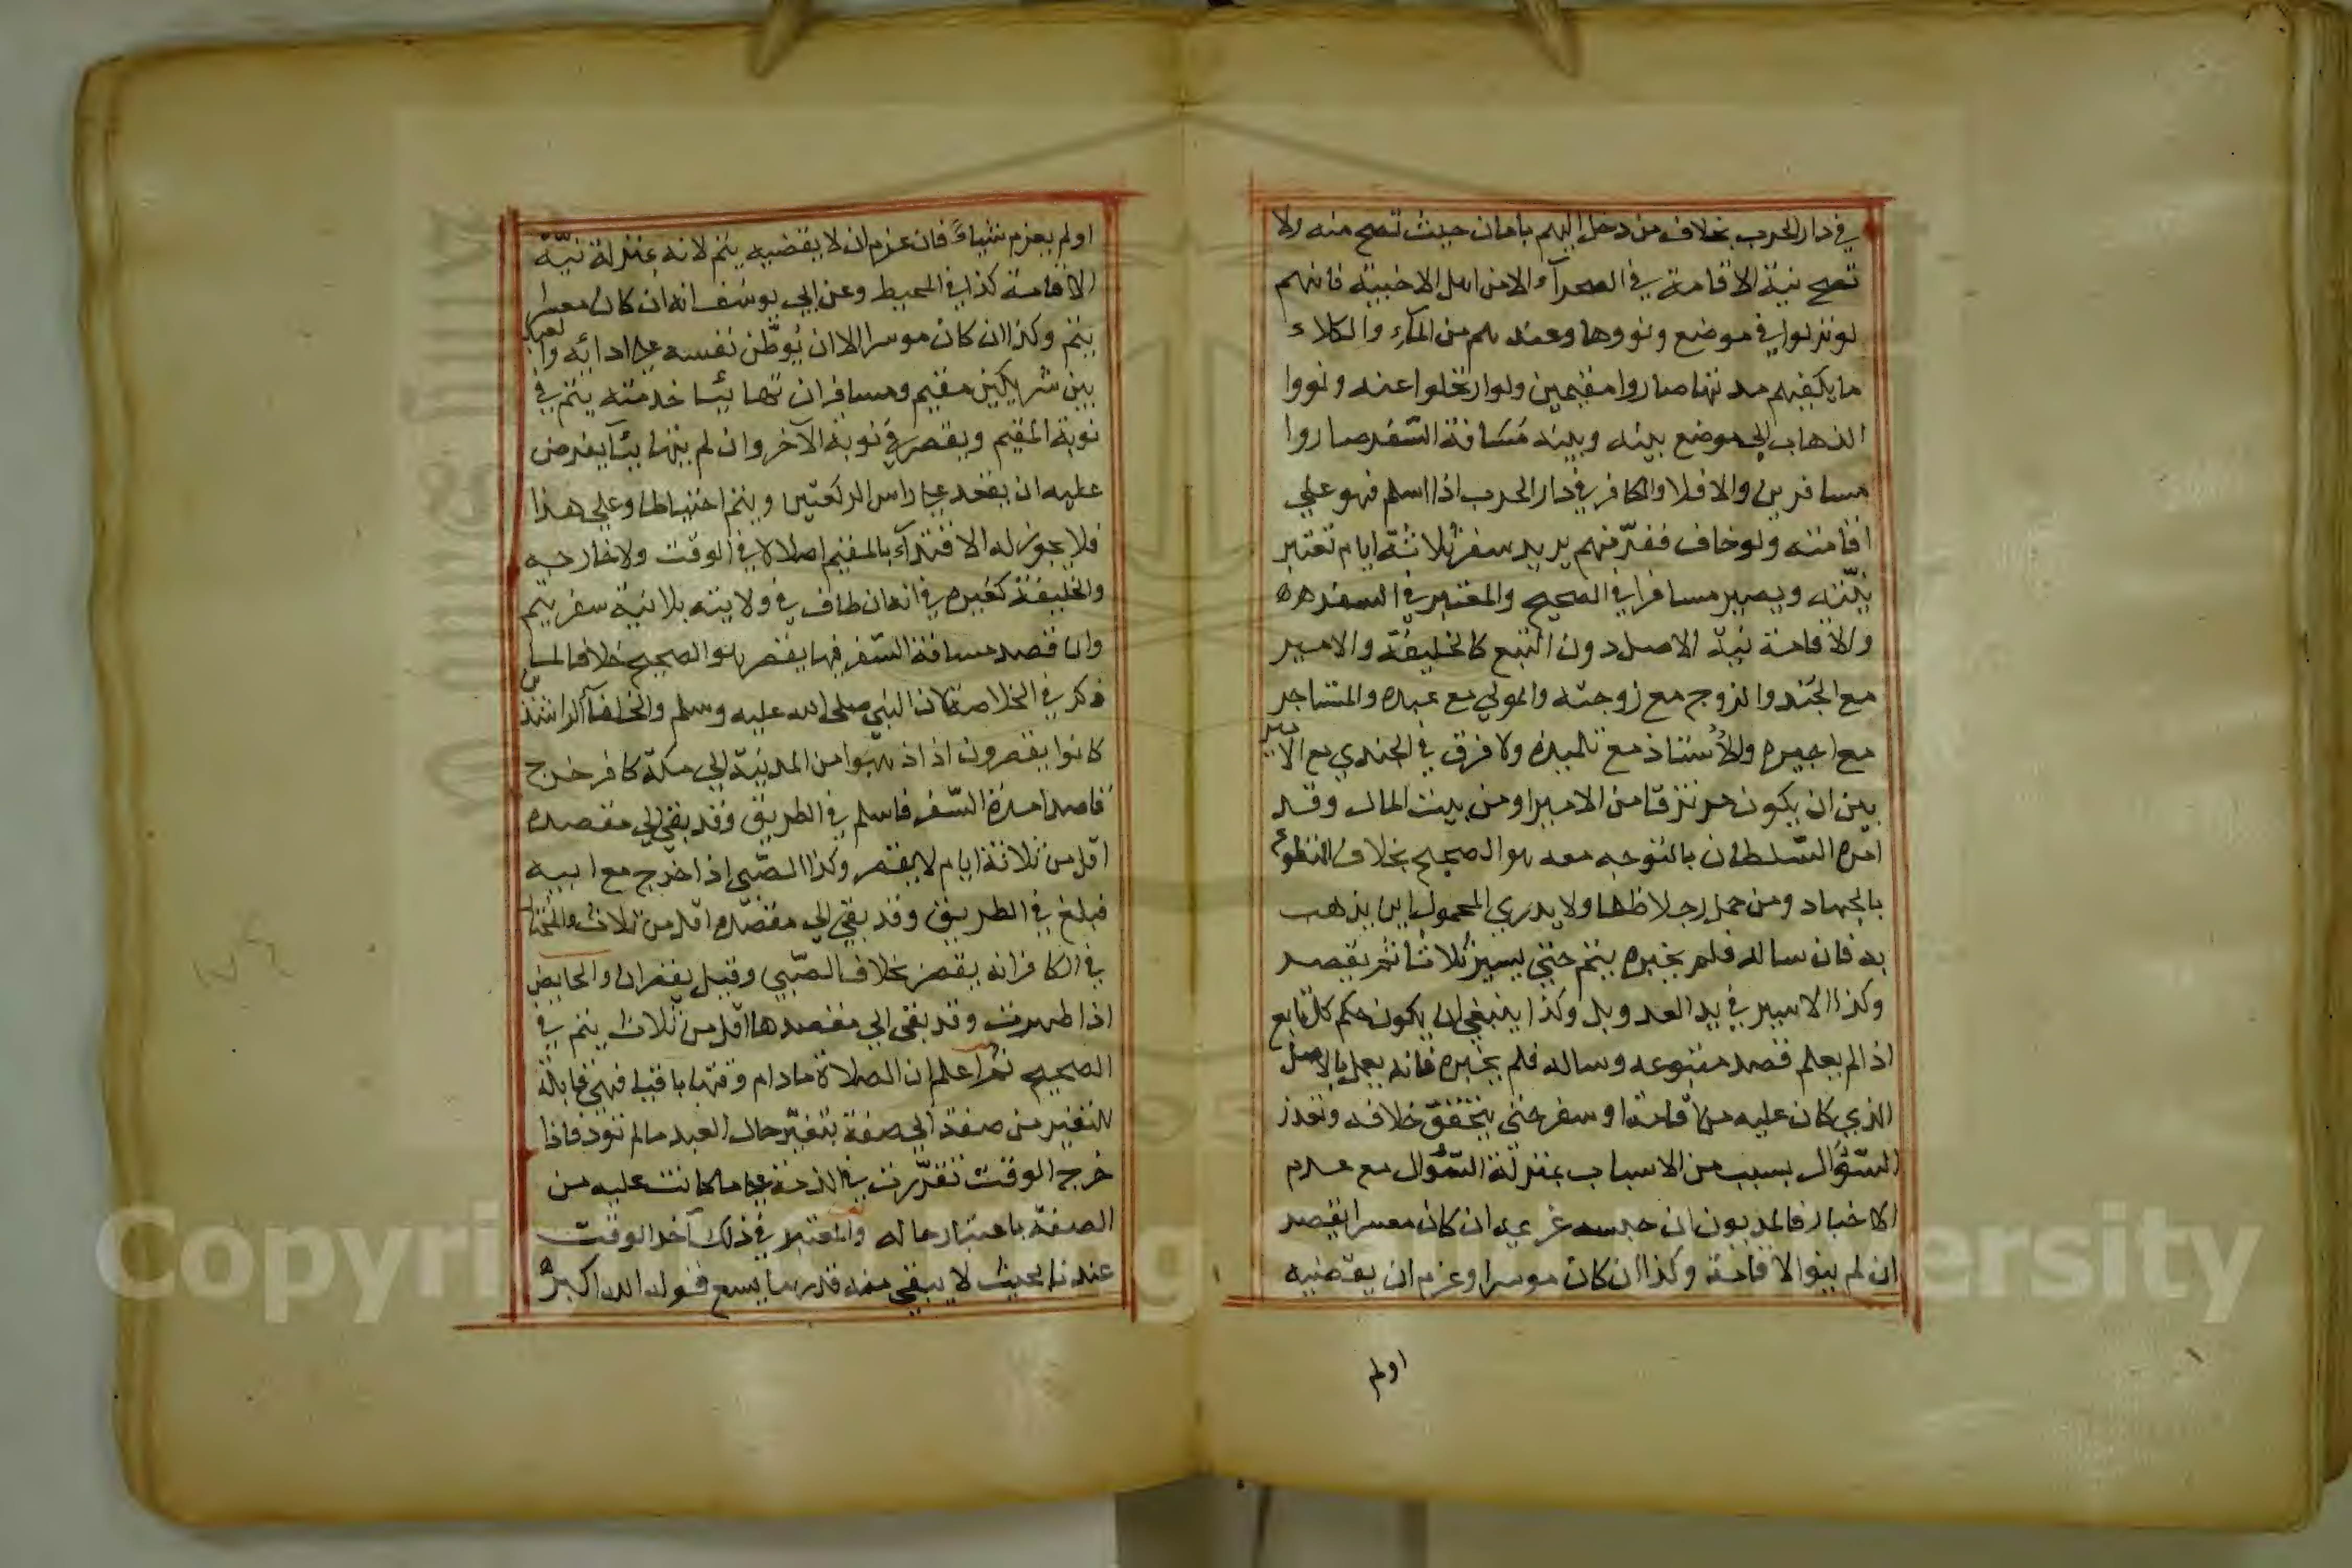 في دار الحرب بخلاف من دخل اليهم بامان حيث تصح منه ولا
تصح نية الاقامة في الصحرآء الا من اهل الاخبية فانهم
لو نزلوا في موضع ونووها وعندهم من المآء والكلاء
ما يكفيهم مدتها صاروا مقيمين ولو ارتحلوا عنه ونووا
الذهاب الى موضع بينه وبينه مَسَافة السّفر صاروا
مسافرين والا فلا والكافر في دار الحرب اذا اسلم فهو على
اقامته ولو خاف ففرّ منهم يريد سفر ثلاثة ايام تعتبر
نيّته ويصير مسافرا في الصحيح والمعتبر في السفر
والاقامة نيّة الاصل دون التبع كالخليفة والامير
مع الجند والزوج مع زوجته والمولى مع عبده والمستاجر
مع اجيره والأستاذ مع تلميذه ولا فرق في الجندي مع الامير
بين ان يكون مرتزقا من الامير او من بيت المال وقد
امره السّلطان بالتوجه معه هو الصحيح بخلاف المتطوع
بالجهاد ومن حمل رجلا ظلما ولا يدري المحمول اين يذهب
به فان ساله فلم يخبره يتم حتى يسير ثلاثا ثم يقصر
وكذا الاسير في يد العدو بل وكذا ينبغي ان يكون حكم كل تابع
اذا لم يعلم قصد متبوعه وساله فلم يخبره فانه يعمل بالاصل
الذي كان عليه من اقامة او سفر حتى يتحقق خلافه وتعذر
السّؤال بسبب من الاسباب بمنزلة السّؤال مع عدم
الاخبار فالمديون ان حبسه غريمه ان كان معسرا يقصر
ان لم ينو الاقامة وكذا ان كان موسرا وعزم ان يقضيه
اولم
اولم يعزم شياءً فان عزم ان لا يقضيه يتم لانه بمنزلة نيّة
الاقامة كذا في المحيط وعن ابي يوسف انه ان كان معسرا
يتم وكذا ان كان موسرا الا ان يُوطّن نفسه على ادائه والعبد
بين شريكين مقيم ومسافر ان تهايئا خدمته يتم في
نوبة المقيم ويقصر في نوبة الآخر وان لم يتهايئآ يفرض
عليه ان يقعد على راس الركعتين ويتم احتياطا وعلى هذا
فلا يجوز له الاقتدآء بالمقيم اصلا لا في الوقت ولا خارجه
والخليفة كغيره في انه ان طاف في ولايته بلا نية سفر يتم
وان قصد مسافة السّفر فيها يقصر هو الصحيح خلافا لما
ذكر في الخلاصة لان النبي صلى الله عليه وسلم والخلفآء الراشدين
كانوا يقصرون اذا ذهبوا من المدينة الى مكة كافر خرج
قاصدا مدة السّفر فاسلم في الطريق وقد بقي الى مقصده
اقل من ثلاثة ايام لا يقصر وكذا الصّبي اذا خرج مع ابيه
فبلغ في الطريق وقد بقي الى مقصده اقل من ثلاث والمختار
في الكافر انه يقصر بخلاف الصّبي وقيل يقصران والحايض
اذا طهرت وقد بقي الى مقصدها اقل من ثلاث يتم في
الصحيح ثم اعلم ان الصلاة ما دام وقتها باقيا فهي قابلة
للتغير من صفة الى صفة بتغيّر حال العبد ما لم تؤد فاذا
خرج الوقت تقرّرت في الذمة على ما كانت عليه من
الصفة باعتبار حاله والمعتبر في ذلك آخر الوقت
عندنا بحيث لا يبقى منه قدر ما يسع قوله الله اكبر